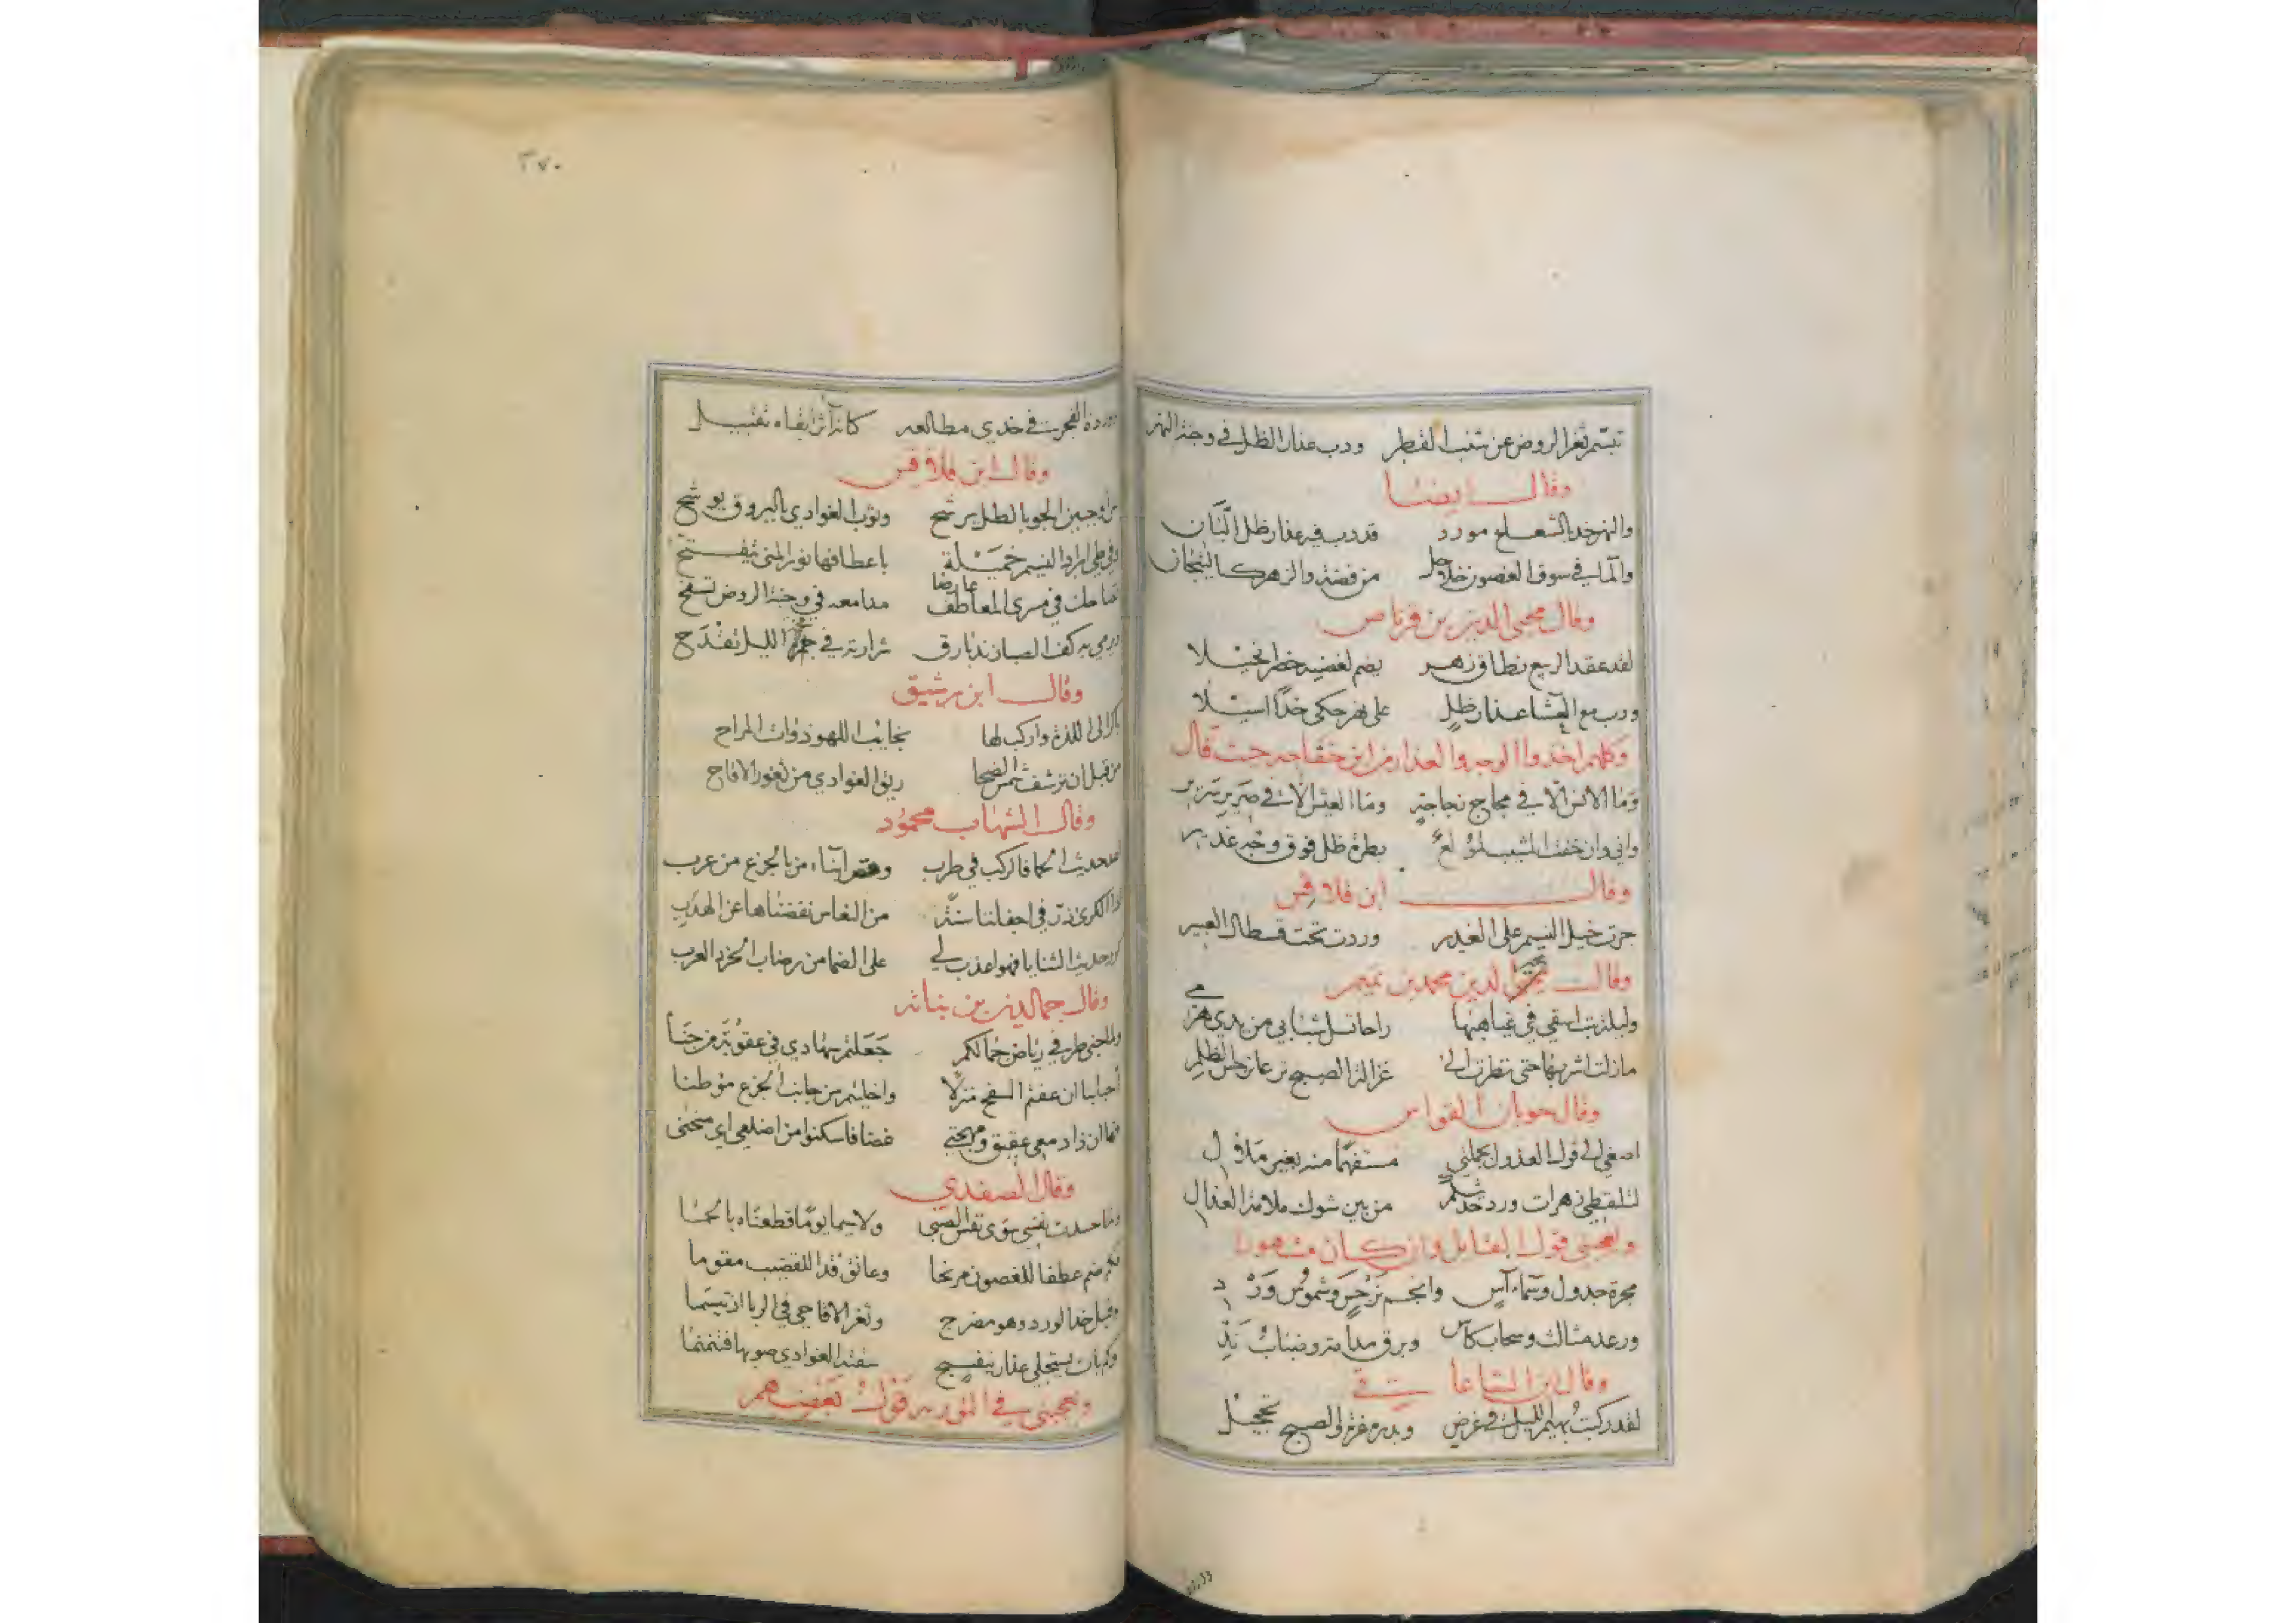 تبسم ثغر الروض عن شنب القطر ودب عذار الظل في وجنة النهر
وقال ايضا
والنهر خد بالشعاع مورد قد دب فيه عذار ظل البان
والماء في سوق الغصون خلاخل من فضة والزهر كالتيجان
وقال محيى الدين بن قرناص
لقد عقد الربيع نطاق زهر يضم لغصنه خصرا نحيلا
ودب مع العشا عذار ظل على نهر حكى خدا اسيلا
وكلهم اخذوا الوجه والعذار من ابن خفاجه حيث قال
وما الانس الا في مجاج زجاجة وما العيش الا في صرير سرير
واني وان خفت المشيب لمولع بطرة ظل فوق وجه غدير
وقال ابن قلاقس
جرت خيل النسيم على الغدير وردت تحت قسطال العبير
وقال مجير الدين محمد بن تميم
وليلة بت اسقي في غياهبها راحا تسل شبابي من يدي هرم
مازلت اشربها حتى نظرت الى غزالة الصبح ترعى نرجس الظلم
وقال جوبان القواس
اصغي الى قول العذول بجملتي مستفهما منه بغير ملال
لتلقطي زهرات ورد حديثكم من بين شوك ملامة العذال
ويعجبني قول القايل وان كان مشهورا
مجرة جدول وسماء آس وانجم نرجس وشموس ورد
ورعد مثالث وسحاب كاس وبرق مدامة وضباب ند
وقال ابن الساعاتي
لقد ركبت بهيم الليل في غرض وبدره غرة الصبح تحجيل
٢٧٠
وردة الفجر في خدي مطالعه كانه آثر ابقاه تقبيل
وقال ابن قلاقس
جبين الجو بالطل يرشح وثوب الغوادي بالبروق يوشح
وفي طي ابراد النسيم خميلة باعطافها نور المنى يتفتح
تضاحك في مسرى المعاطف عارضا مدامعه في وجنة الروض تسفح
وري به كف الصبا زند بارق شرارته في فحمة الليل تقدح
وقال ابن رشيق
باكر الى اللذة واركب لها نجايب اللهو ذوات المراح
من قبل ان ترشف شمس الضحا ريق الغوادي من ثغور الاقاح
وقال الشهاب محمود
حديث الحما فالركب في طرب من بالجزع من عرب
الكرى في اجفاننا سنة من النعاس نفضناها عن الهدب
كرر حديث الثنايا فهو اعذب لي على الضما من رضاب الخرد العرب
وقال جمال الدين بن نباته
ولما جنى طرفي رياض جمالكم جعلتم سهادي في عقوبة من جنا
أحبابنا ان عفتم السفح منزلا واخليتم من جانب الجزع موطنا
فما ان زاد دمعي عقيق ومهجتي غضا فاسكنوا من اضلعي اي منحنى
وقال الصفدي
وما حسدت نفسي سوى نفس الصبى ولا سيما يوما قطعناه بالحما
فكم ضم عطفا للغصون مرنحا وعانق قدا للقضيب مقوما
وقبل خد الورد وهو مضرج وثغر الاقاحي في الربا ان تبسما
وكم بات يستجلي عذار بنفسج سقته الغوادي صوبها فتنمنما
ويعجبني في التورية قول بعضهم